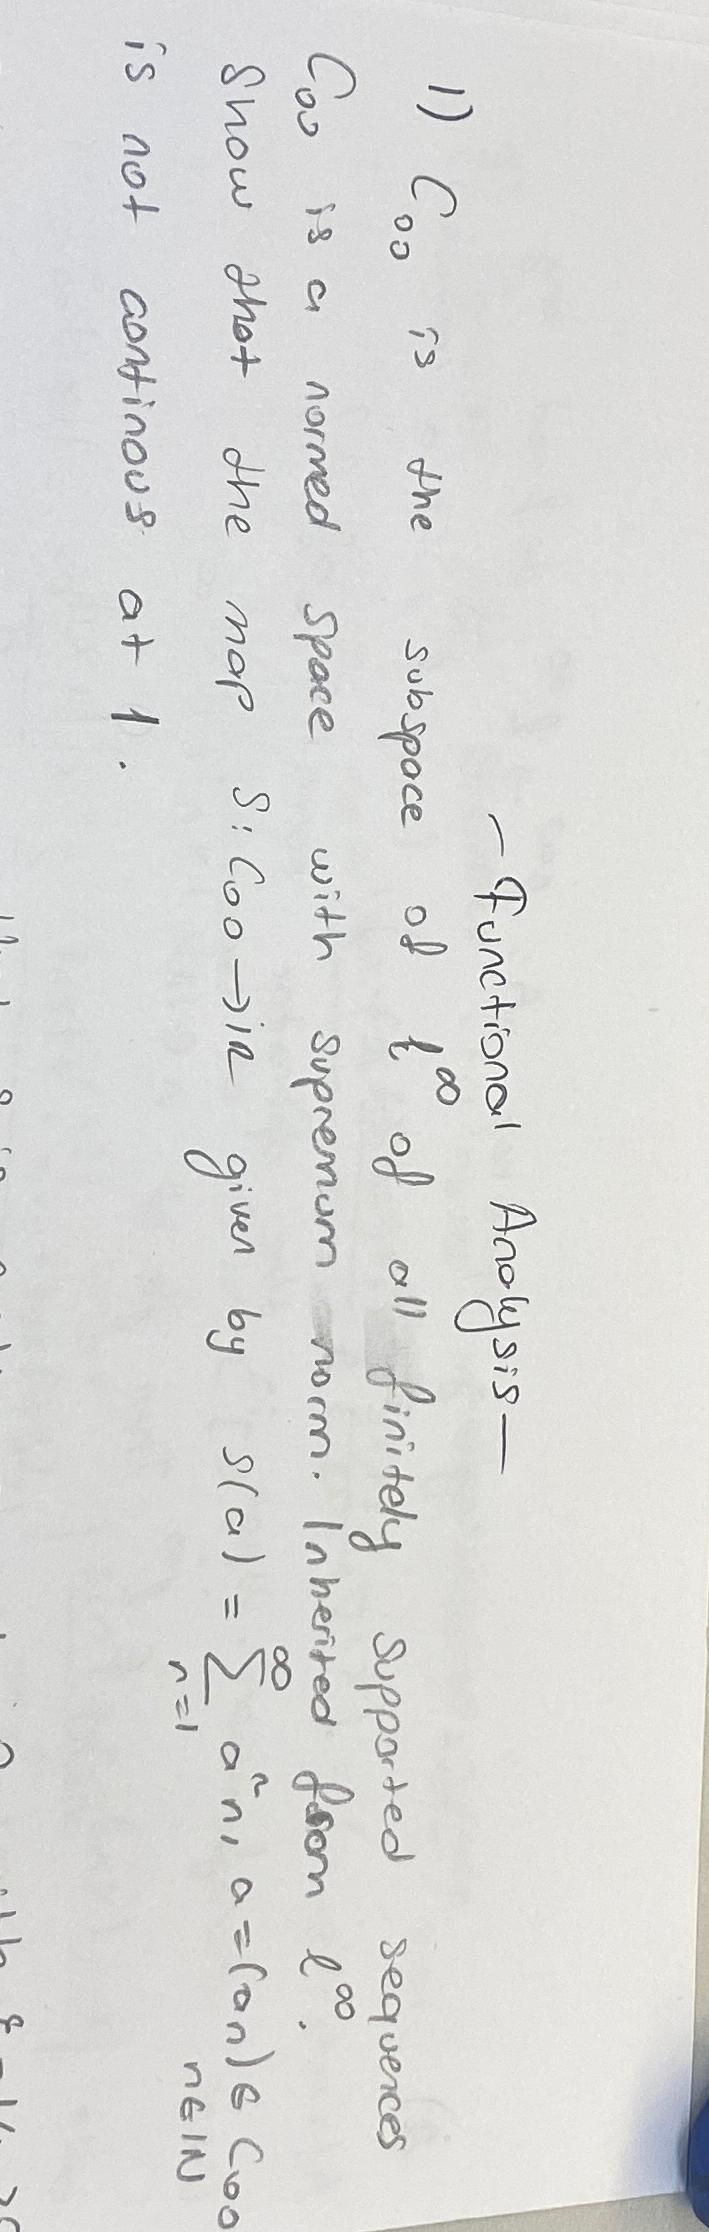 - Functional Analysis -
1) C₀₀ is the subspace of ℓ^∞ of all finitely supported sequences
C₀₀ is a normed space with supremum norm. Inherited from ℓ^∞.
Show that the map S: C₀₀ → IR given by S(a) = ∑_{n=1}^{∞} a²n, a = (an) ∈ C₀₀ n∈IN
is not continous at 1.